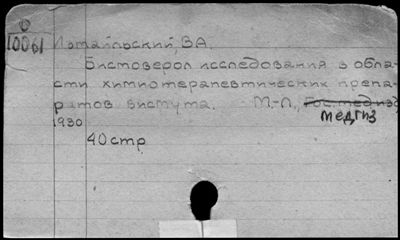 0
10061
Измаильский, В.А.
Бистоверол исследования в обла-
сти химиотерапевтических препа-
ратов висмута. М.-Л., Гос. мед. изд.
Медгиз
1930
40 стр